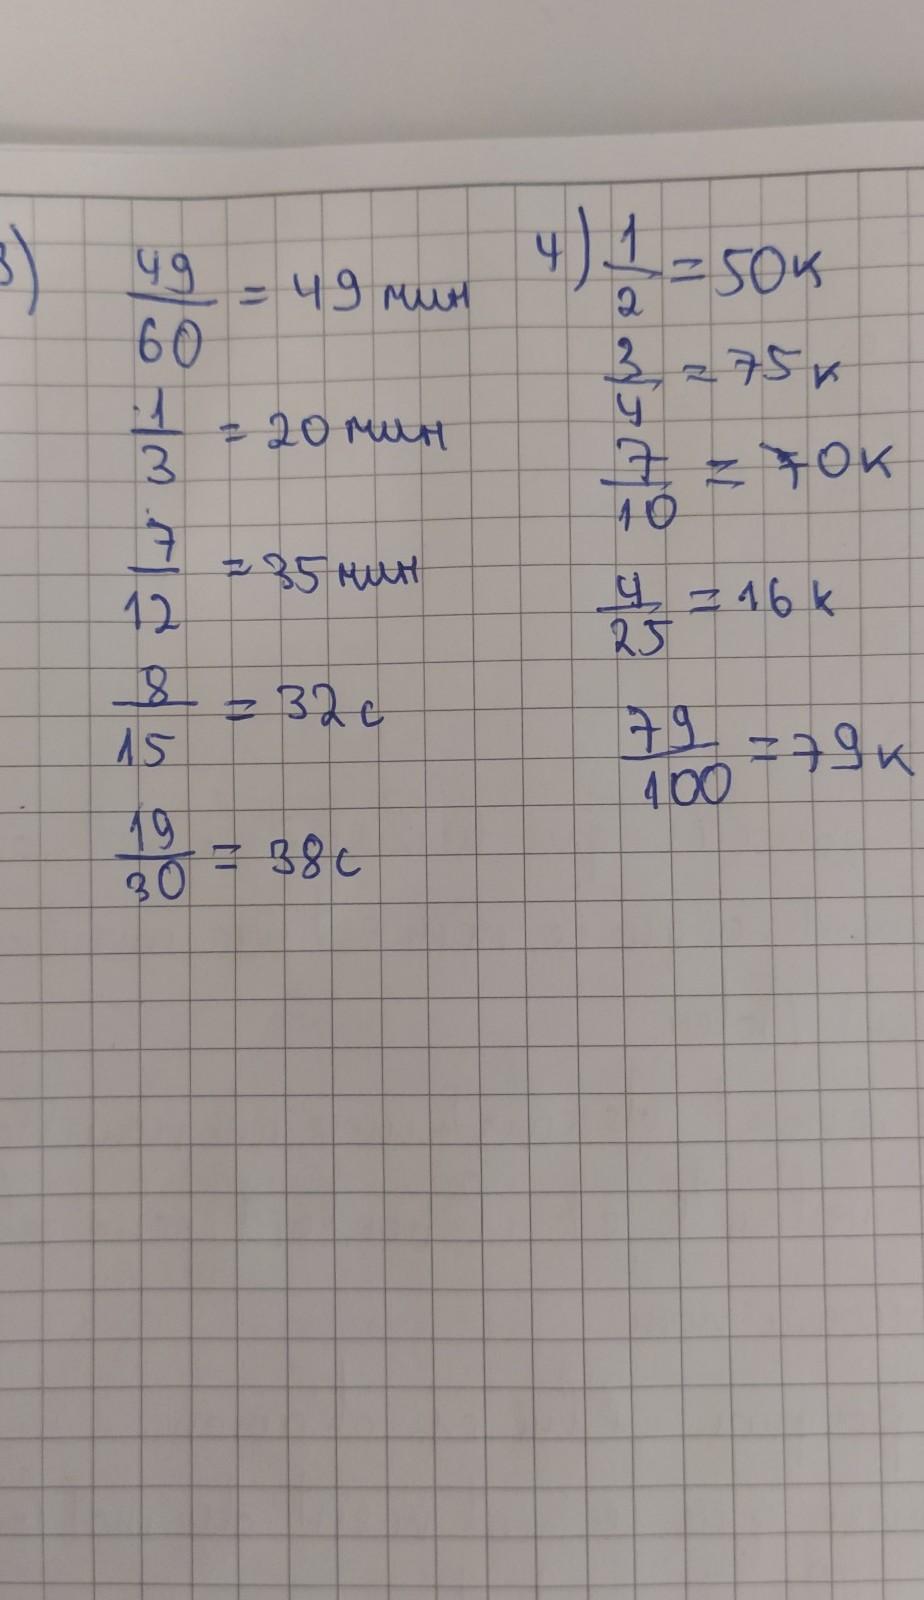 3)
49/60 = 49 мин
1/3 = 20 мин
7/12 = 35 мин
8/15 = 32 с
19/30 = 38 с
4) 1/2 = 50 к
3/4 = 75 к
7/10 = 70 к
4/25 = 16 к
79/100 = 79 к